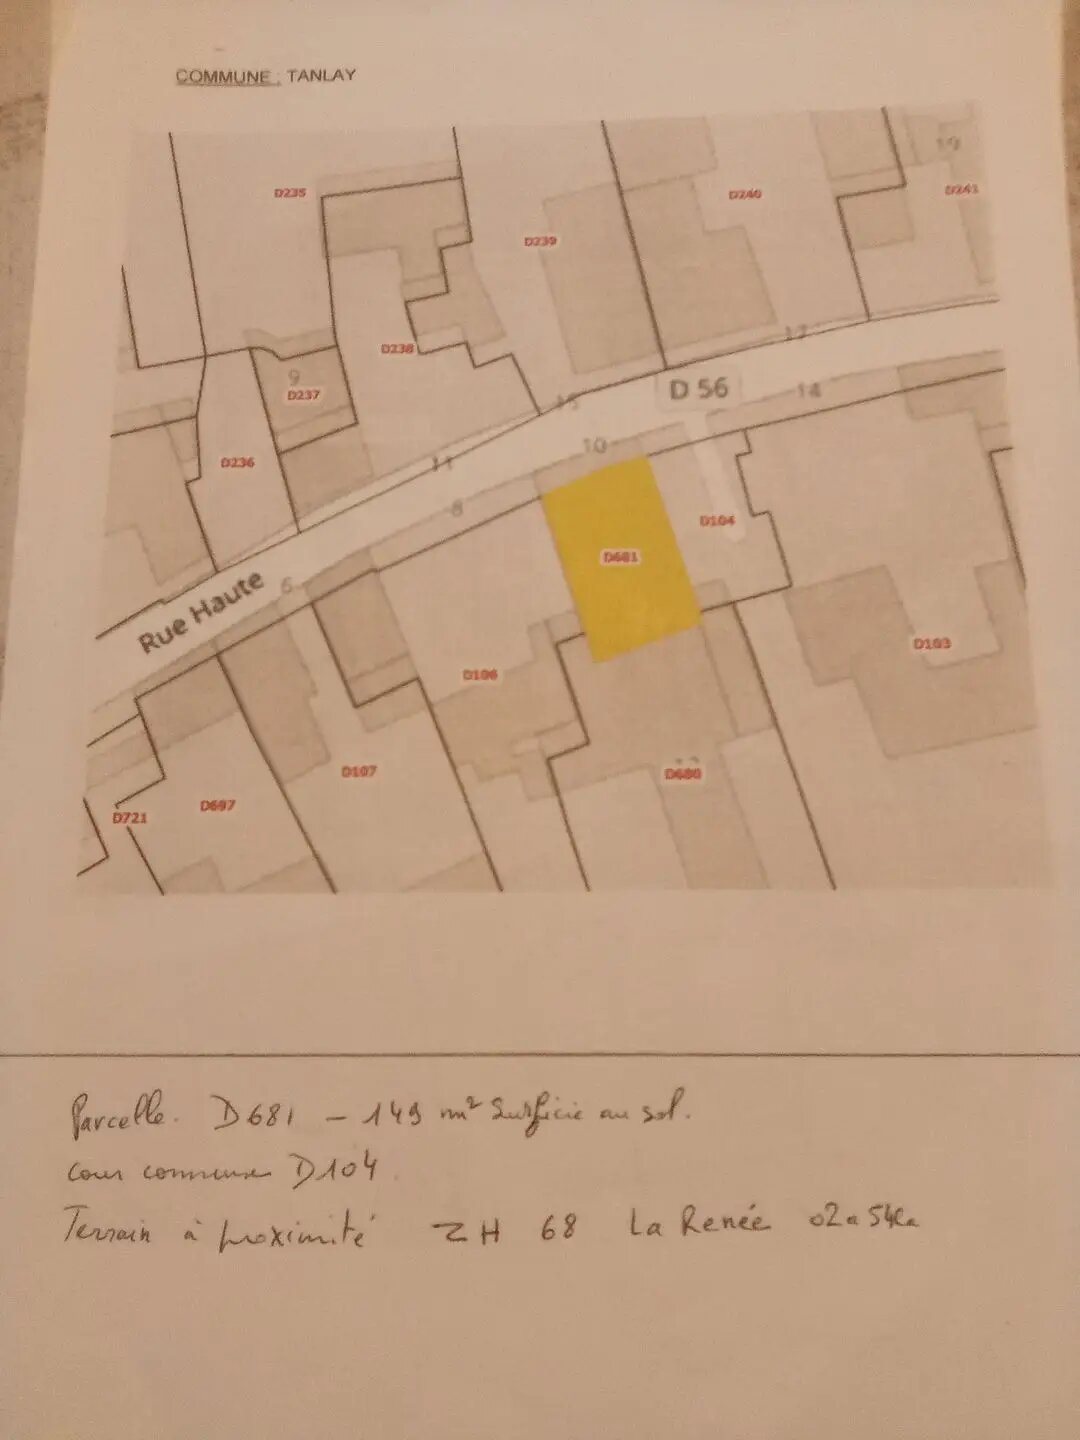 COMMUNE : TANLAY
19
D235
D240
D241
D239
17
D238
9
D237
D 56
14
15
10
D236
11
8
D104
D681
Rue Haute
6
D103
D106
D107
D680
D697
D721
Parcelle. D681 - 149 m² Surficie au sol.
Cour commune D104.
Terrain à proximité ZH 68 La Renée 02a54ca